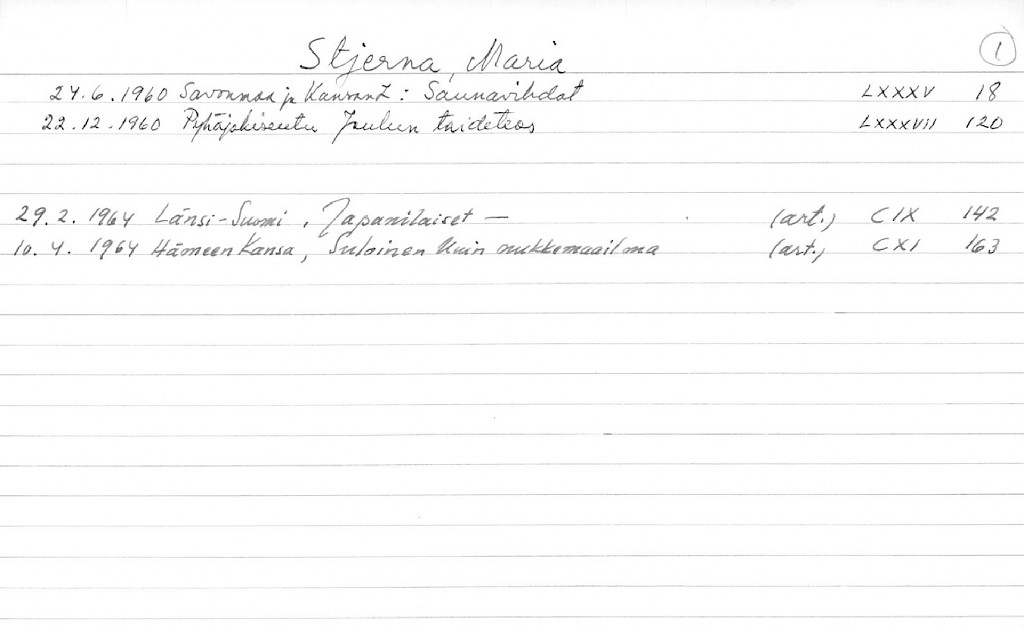 Stjerna, Maria 1
24.6.1960 Savonmaa ja Kansant : Saunavihdat LXXXV 18
22.12.1960 Pyhäjokiseutu Joulun taideteos LXXXVII 120
29.2.1964 Länsi-Suomi, Japanilaiset — (art.) CIX 142
10.4.1964 Hämeen Kansa, Suloinen kuin nukkemaailma (art.) CXI 163